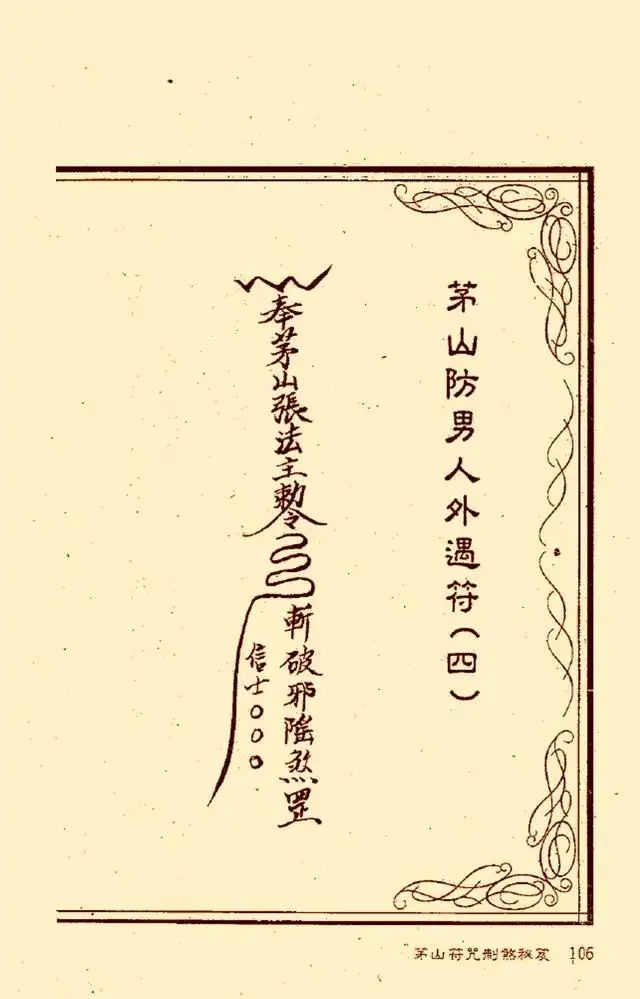 茅山防男人外遇符(四)
奉茅山張法主勅令
斬破邪煞罡
信士○○○
茅山符咒制煞秘笈 106